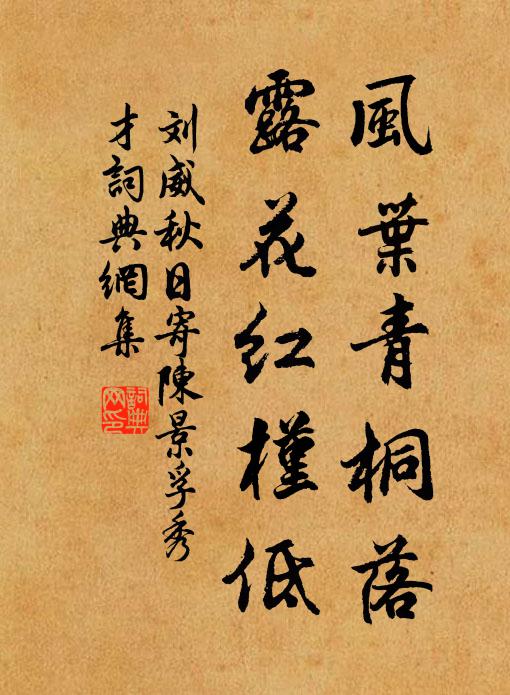 風葉青桐落
露花紅槿低
刘威秋日寄陳景孚秀
才詞典網集
詞典
网印